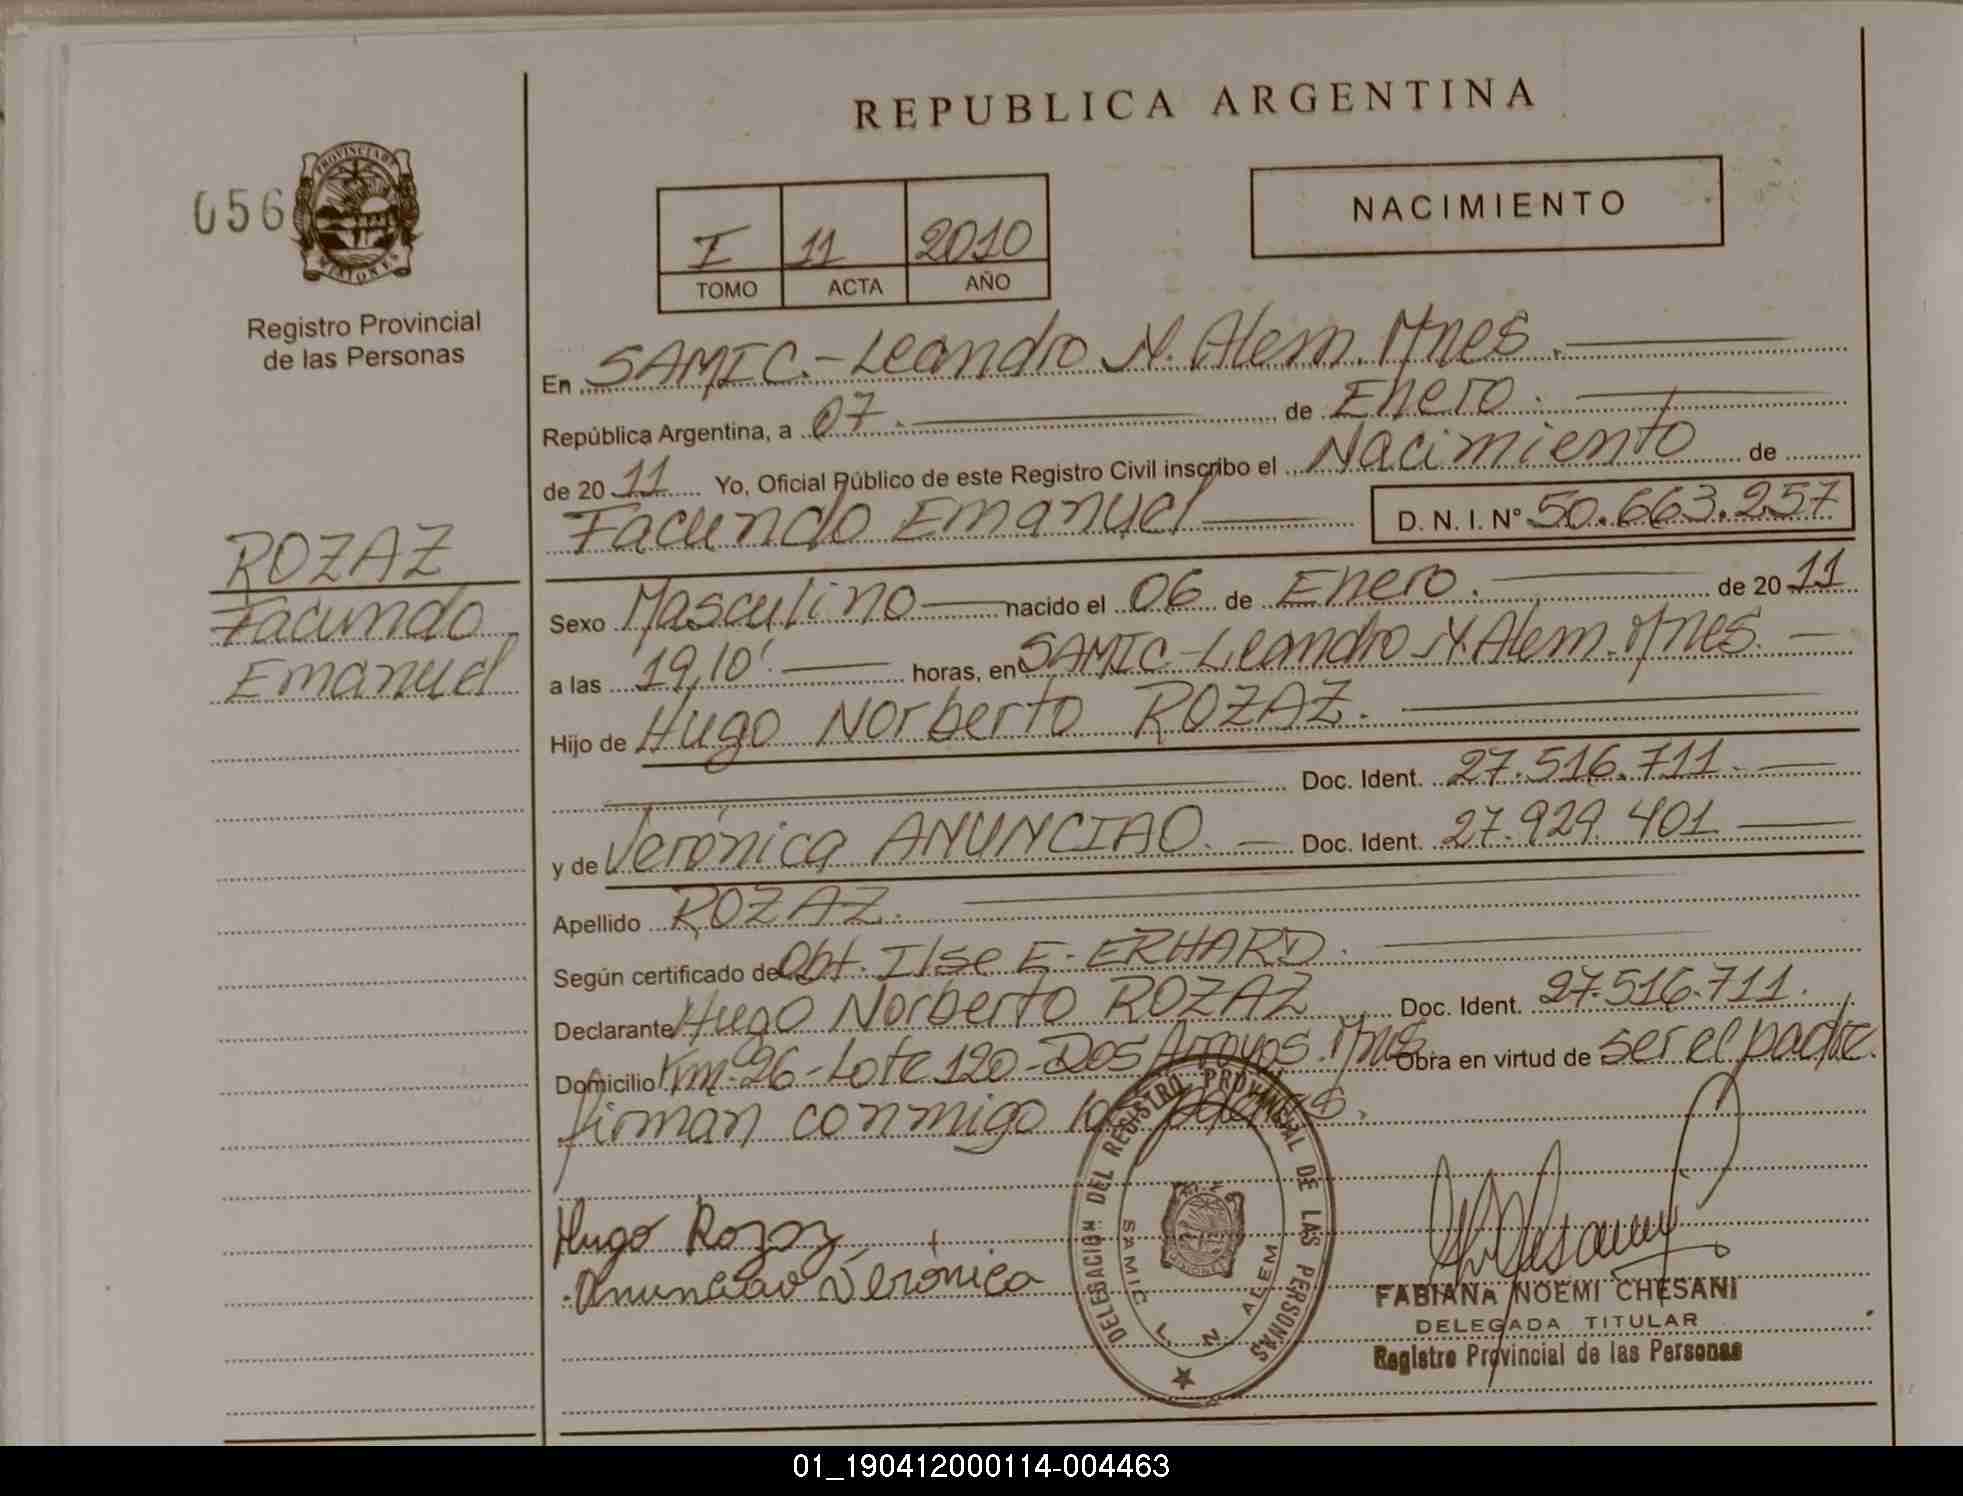 REPUBLICA ARGENTINA
056
PROVINCIA DE
MISIONES
Registro Provincial
de las Personas
I 11 2010
TOMO ACTA AÑO
NACIMIENTO
En SAMIC.-Leandro N. Alem. Mnes.
República Argentina, a 07. de Enero.
de 20 11 Yo, Oficial Público de este Registro Civil inscribo el Nacimiento de
Facundo Emanuel D. N. I. N° 50.663.257
ROZAZ
Facundo
Emanuel
Sexo Masculino nacido el 06 de Enero. de 20 11
a las 19,10'. horas, en SAMIC-Leandro N. Alem. Mnes.
Hijo de Hugo Norberto ROZAZ.
Doc. Ident. 27.516.711.
y de Verónica ANUNCIAO. Doc. Ident. 27.929.401
Apellido ROZAZ.
Según certificado de Obt. Ilse E. ERHARD.
Declarante Hugo Norberto ROZAZ Doc. Ident. 27.516.711.
Domicilio Km. 26-Lote 120-Dos Arroyos. Mnes Obra en virtud de ser el padre.
firman conmigo los padres.
Hugo Rozaz
Anunciao Verónica
DELEGACION DEL REGISTRO PROVINCIAL DE LAS PERSONAS
SAMIC L. N. ALEM
FABIANA NOEMI CHESANI
DELEGADA TITULAR
Registro Provincial de las Personas
01_190412000114-004463